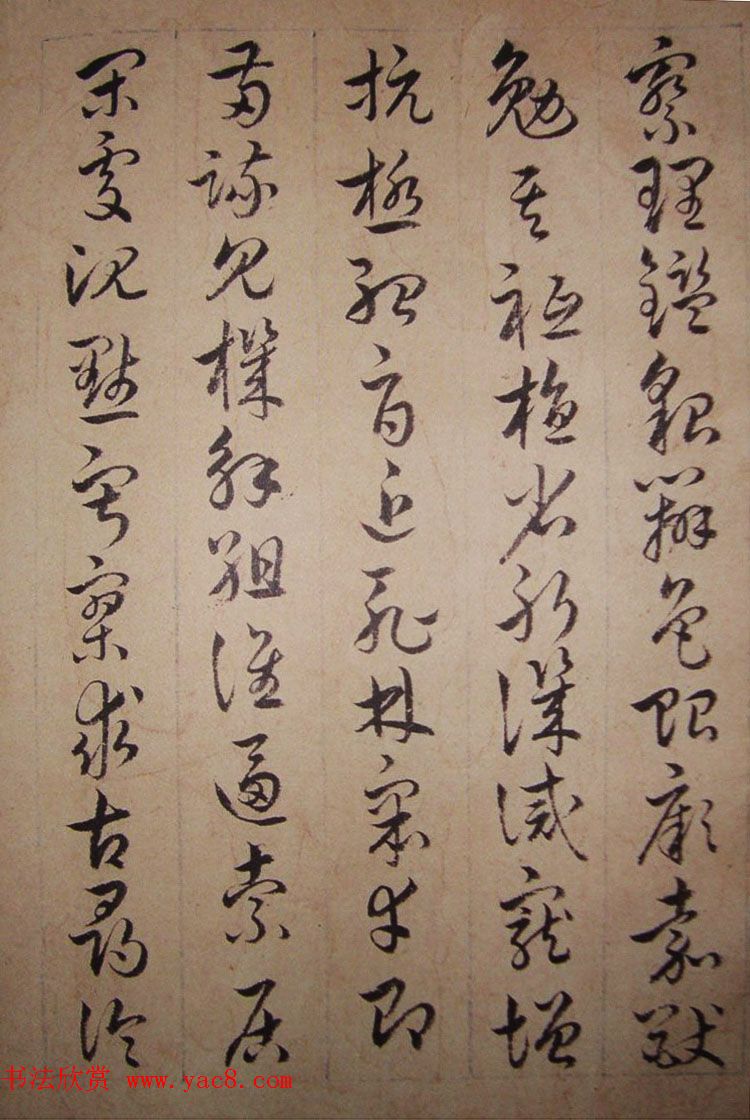 察理鑑貌辯色貽厥嘉猷
勉其祗植省躬譏誡寵增
抗極殆辱近恥林皋幸即
兩疏見機解組誰逼索居
閑處沉默寂寥求古尋論
书法欣赏 www.yac8.com